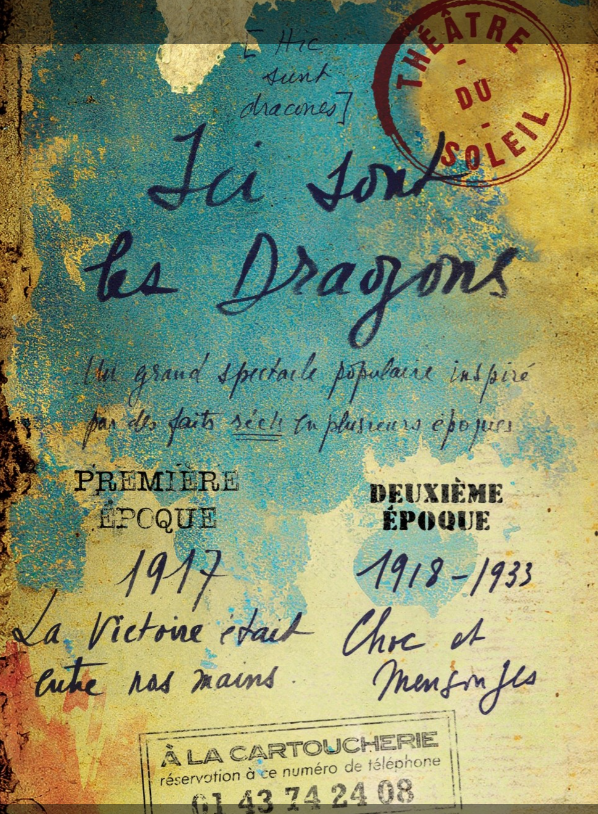 [Hic
sunt
dracones]
THÉÂTRE
- DU -
SOLEIL
Ici sont
les Dragons
Un grand spectacle populaire inspiré
par des faits réels en plusieurs époques
PREMIÈRE
ÉPOQUE
1917
La Victoire était
entre nos mains
DEUXIÈME
ÉPOQUE
1918-1933
Choc et
Mensonges
À LA CARTOUCHERIE
réservation à ce numéro de téléphone
01 43 74 24 08